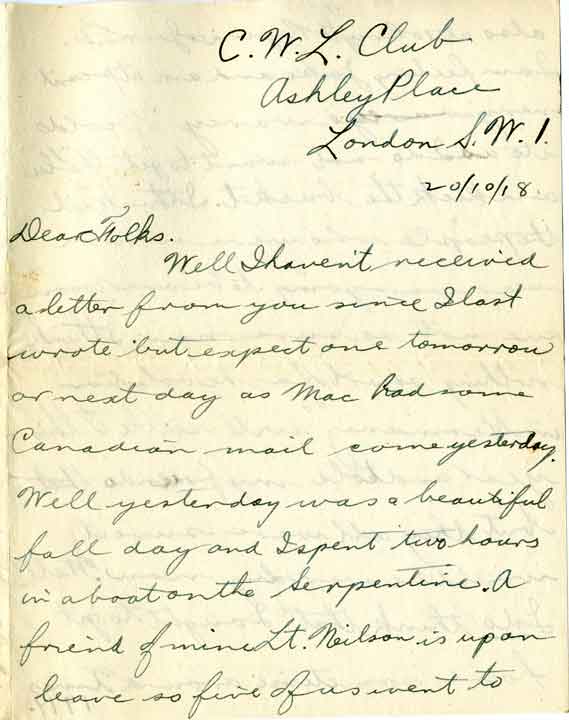 C.W.L. Club
Ashley Place
London S.W.1.
20/10/18
Dear Folks.
Well I haven't received
a letter from you since I last
wrote but expect one tomorrow
or next day as Mac had some
Canadian mail come yesterday.
Well yesterday was a beautiful
fall day and I spent two hours
in a boat on the Serpentine. A
friend of mine Lt. Neilson is up on
leave so five of us went to